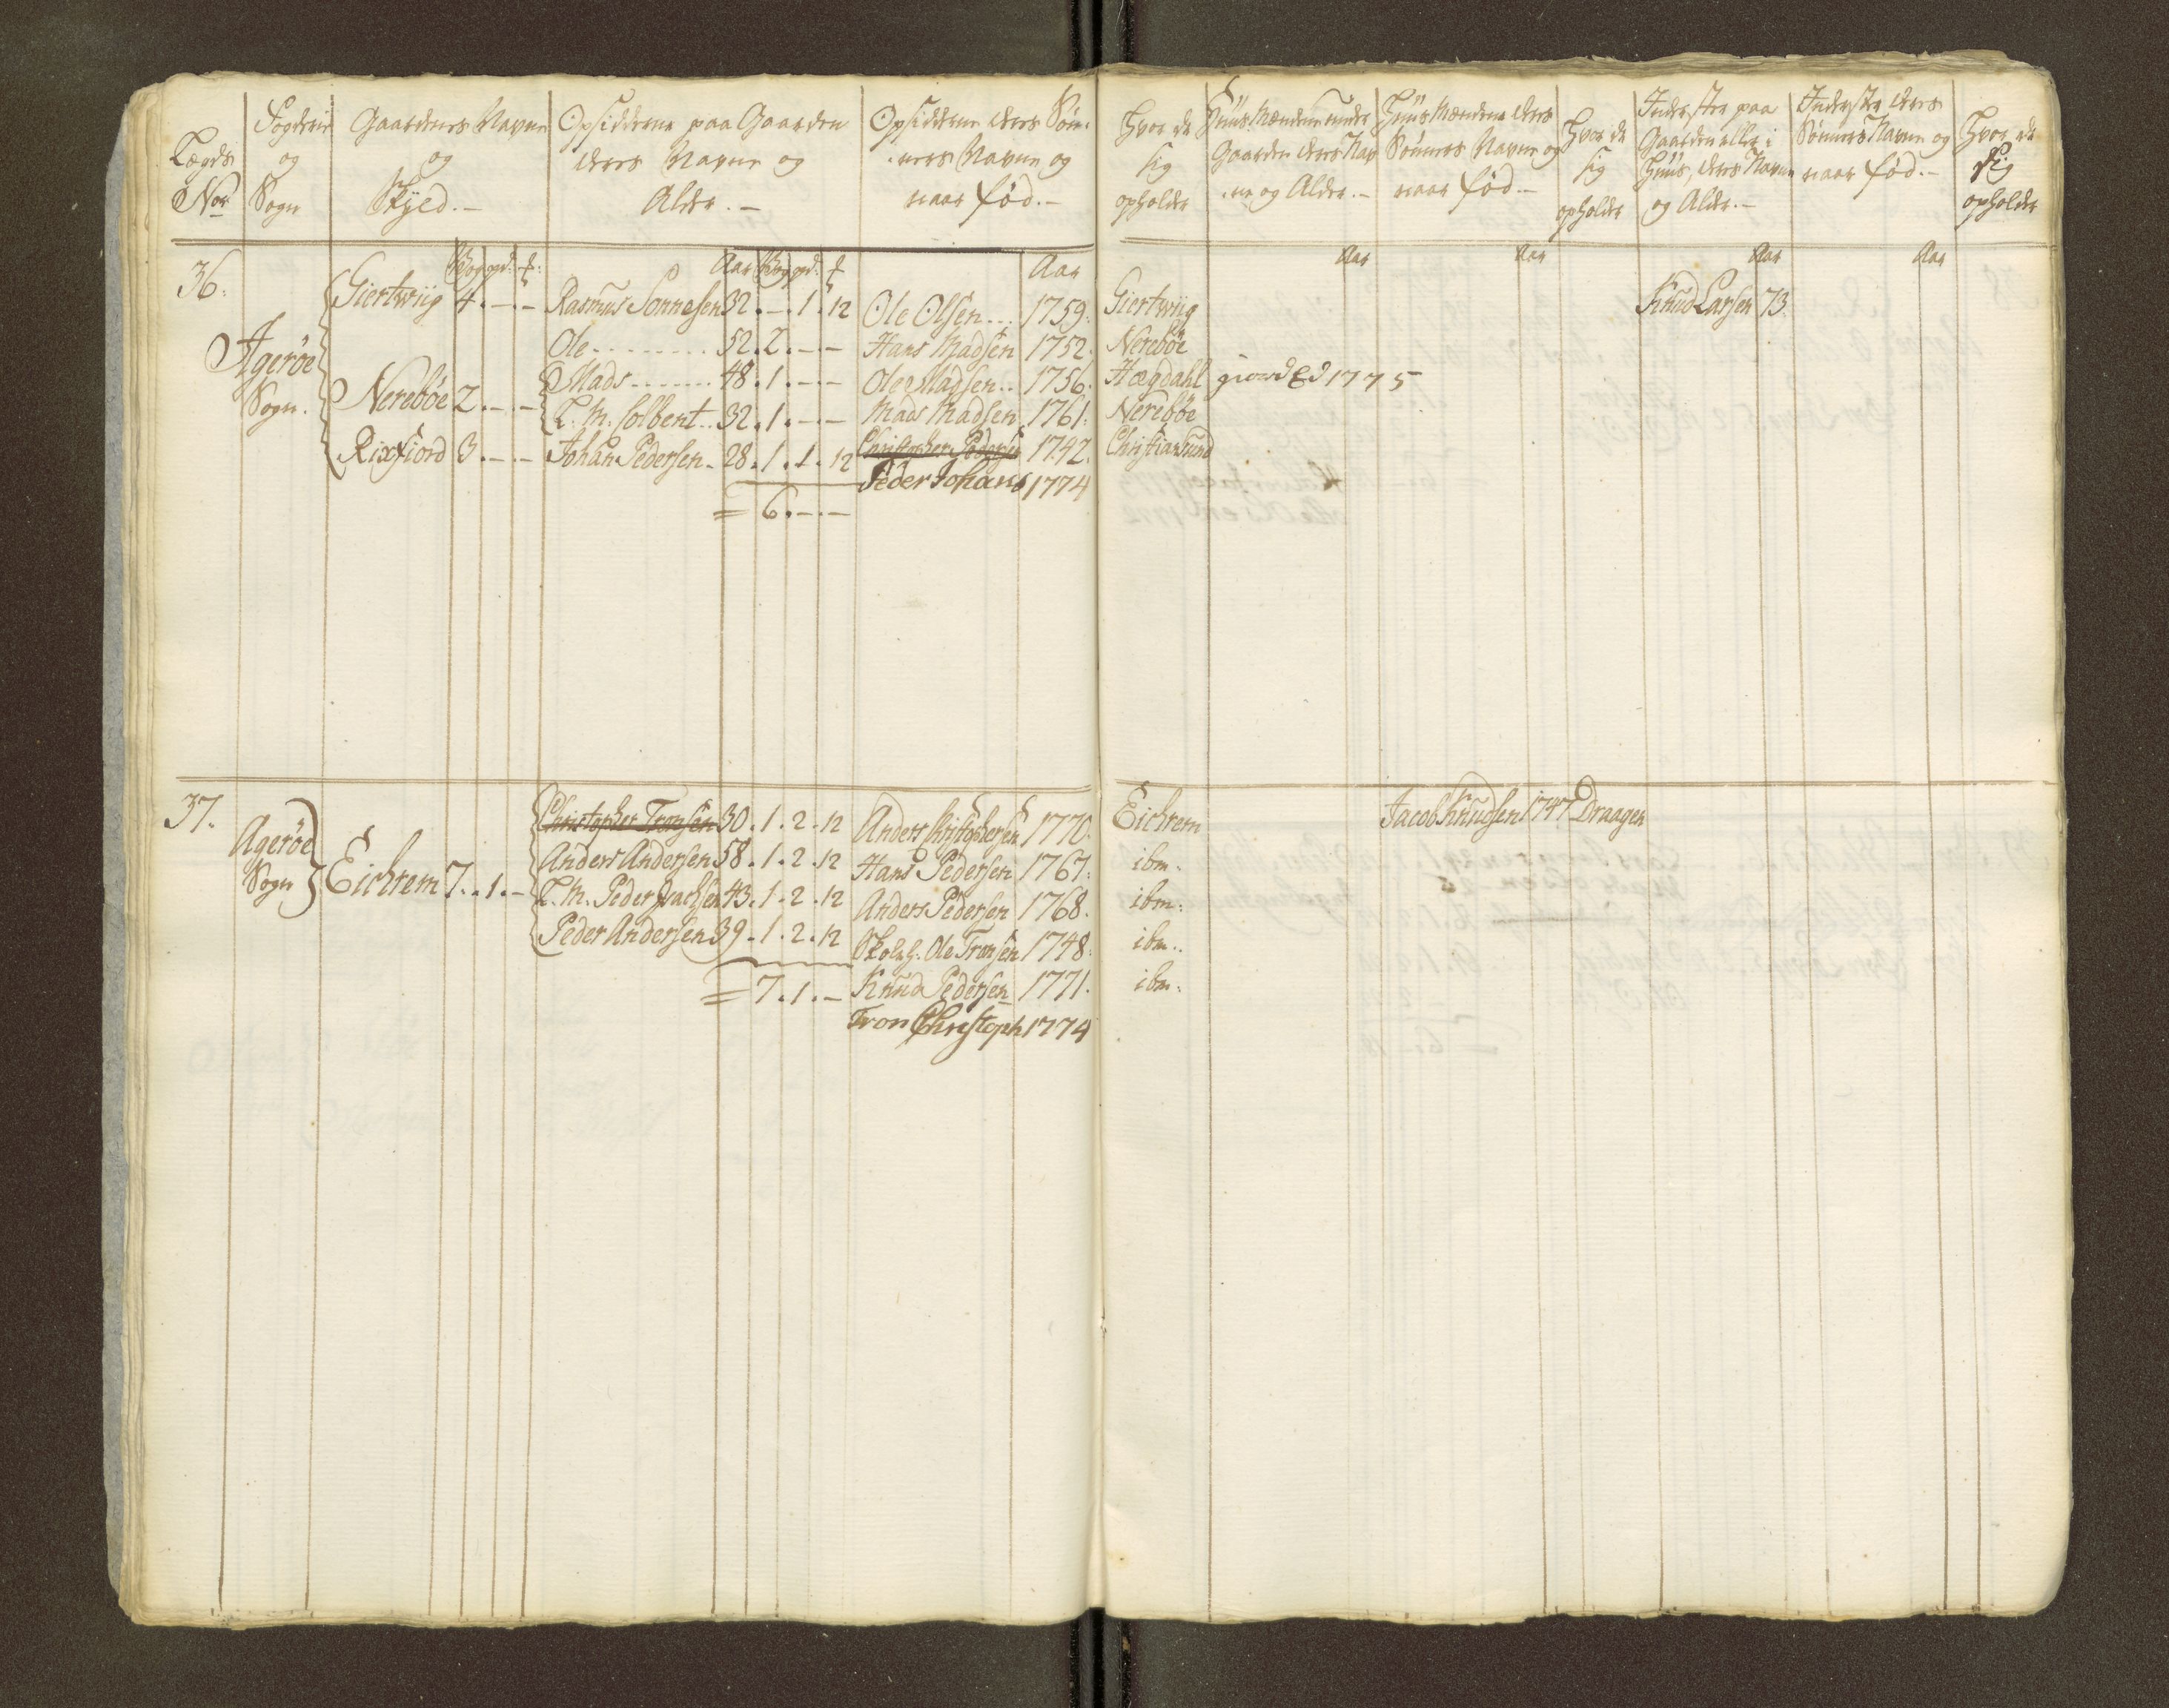 Lægds
No
Fogderie
og
Sogn
Gaardens Navne
og
Skyld.-
Opsidderne paa Gaarden
deres Navne og
Alder.-
Opsiddernes deres Søn-
ners Navne og
naar fød.-
Hvor de
sig
opholder
Huus-Mændene under
Gaarden deres Nav
ne og Alder.-
Huus Mændene deres
Sønners Navne og
naar fød.-
Hvor de
sig
opholder
Inderster paa
Gaarden eller i
Huus, deres Navne
og Alder.-
Inderster deres
Sønners Navne og
naar fød.-
Hvor de
sig
opholder
Aar
Aar
Aar
Aar
Aar
Aar
36.
Agerøe
Sogn.
Giertwiig 4.-.- Rasmus Sonnesen 32.-.1.12 Ole Olsen 1759. Giertwiig Knud Larsen 73.
Ole 52.2.-.- Hans Madsen 1752. Nerebøe
Nerebøe 2.-.- Mads 48.1.-.- Ole Madsen 1756. Hægdahl giord Ed 1775
L. M. Solbent 32.1.-.- Mads Madsen 1761. Nerebøe
Rixfiord 3.-.- Johan Pedersen 28.1.1.12 Christopher Pedersen 1742. Christiansund
Peder Johans 1774
= 6.-.-
37.
Agerøe
Sogn
Eichrem 7.1.-
Christopher Tronsen 30.1.2.12 Anders Christophersen 1770. Eichrem Jacob Knudsen 1747 Draagen
Anders Andersen 58.1.2.12 Hans Pedersen 1767. ibm.
L. M. Peder Isachsen 43.1.2.12 Anders Pedersen 1768. ibm.
Peder Andersen 39.1.2.12 Skoleh. Ole Tronsen 1748. ibm.
= 7.1.- Knud Pedersen 1771. ibm.
Tron Christoph 1774